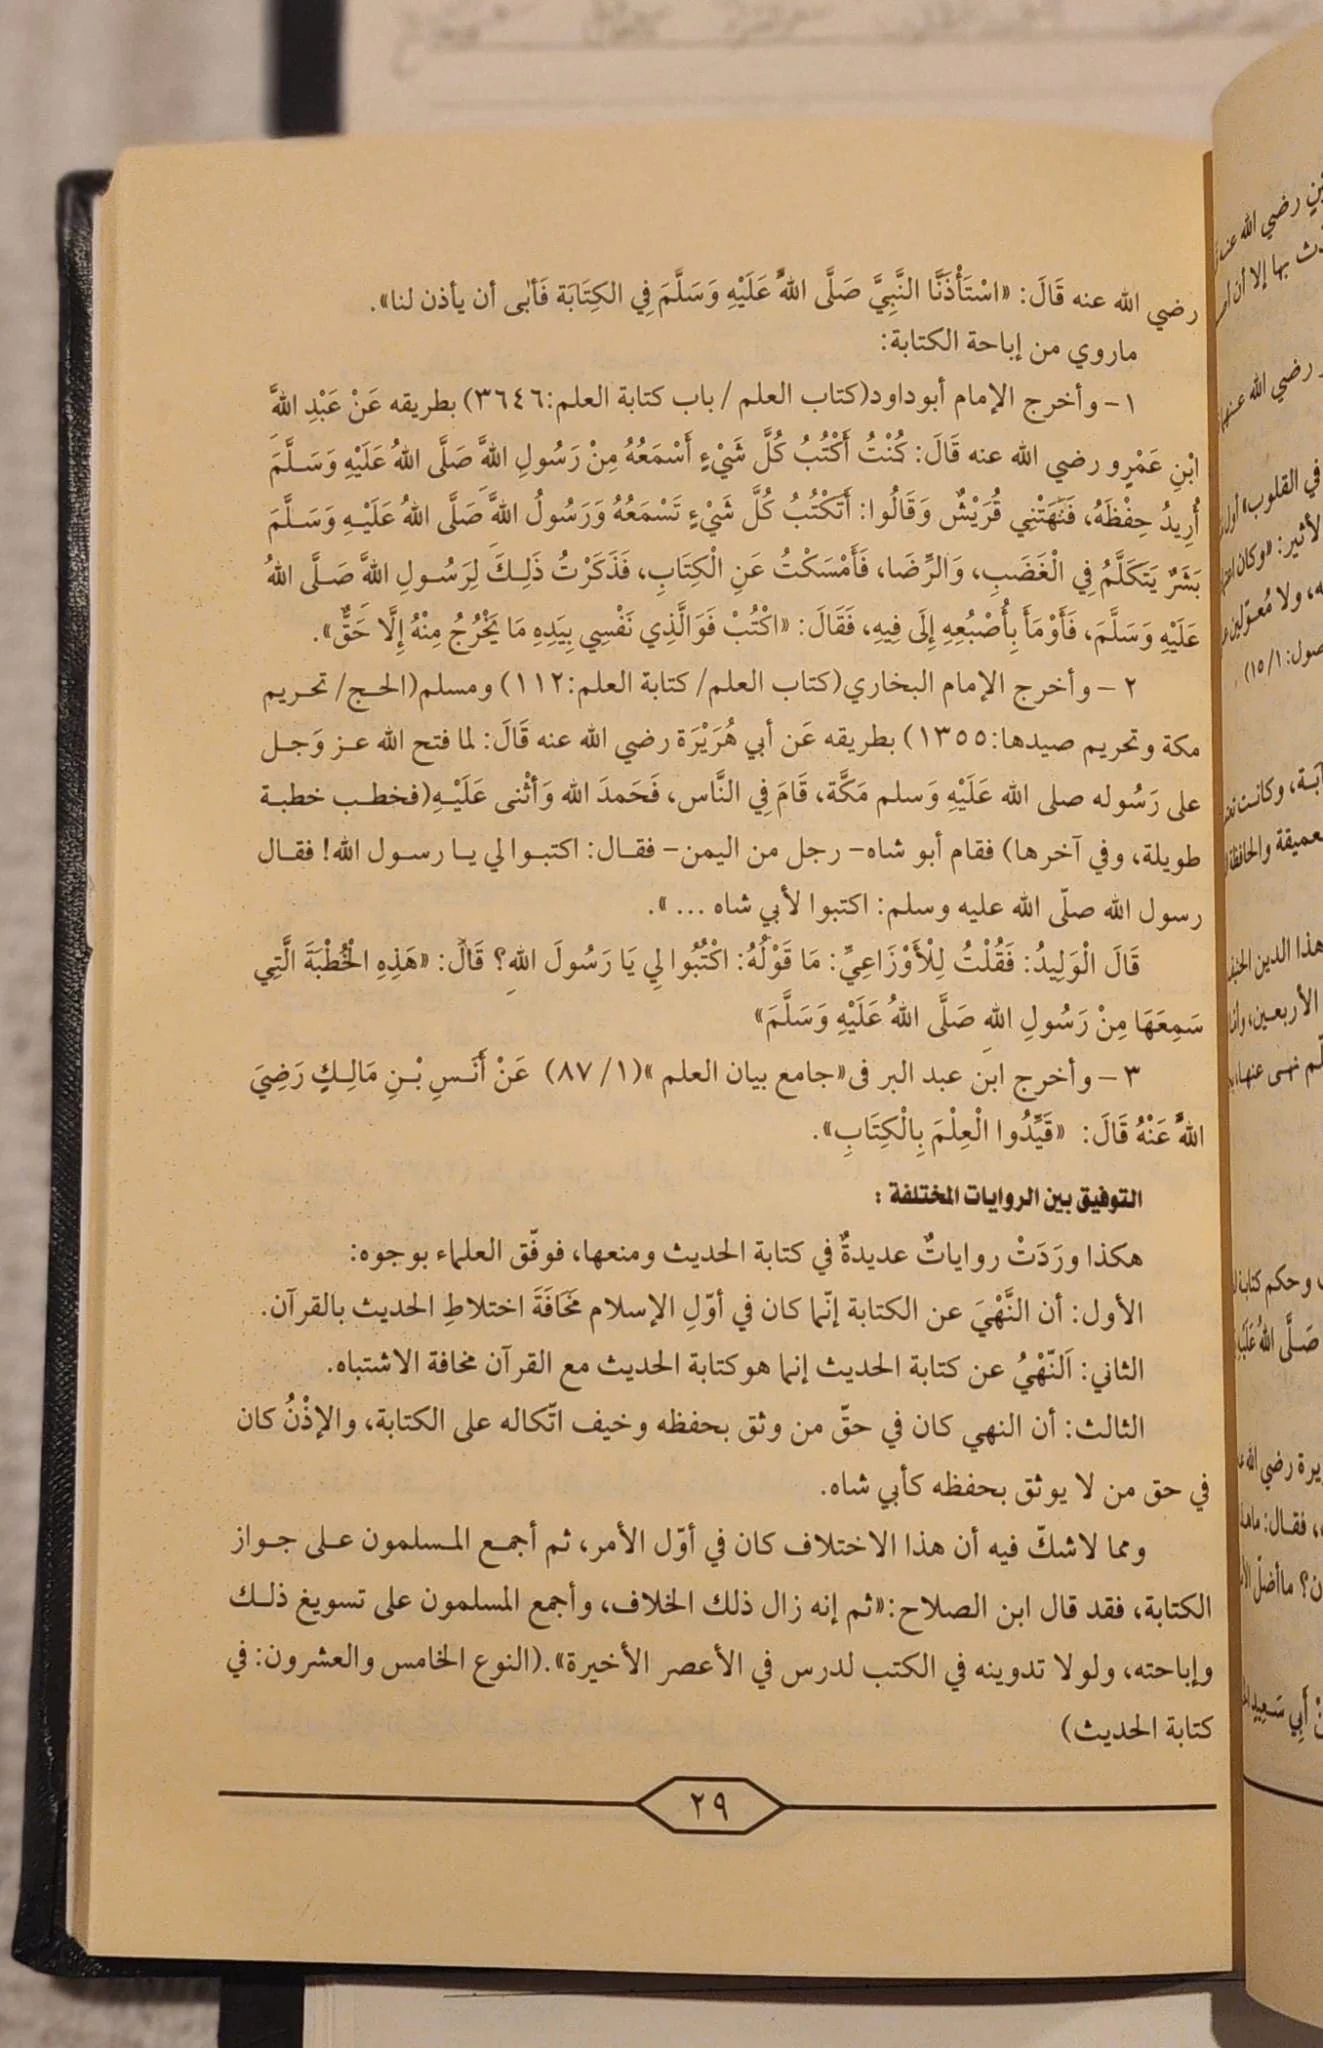 رضي الله عنه قَالَ: «اسْتَأْذَنَّا النَّبِيَّ صَلَّى اللهُ عَلَيْهِ وَسَلَّمَ فِي الكِتَابَة فَأبى أن يأذن لنا».
ماروي من إباحة الكتابة:
١- وأخرج الإمام أبوداود(كتاب العلم / باب كتابة العلم:٣٦٤٦) بطريقه عَنْ عَبْدِ اللهِ
ابْنِ عَمْرٍو رضي الله عنه قَالَ: كُنْتُ أَكْتُبُ كُلَّ شَيْءٍ أَسْمَعُهُ مِنْ رَسُولِ اللهِ صَلَّى اللهُ عَلَيْهِ وَسَلَّمَ
أُرِيدُ حِفْظَهُ، فَنَهَتْنِي قُرَيْشٌ وَقَالُوا: أَتَكْتُبُ كُلَّ شَيْءٍ تَسْمَعُهُ وَرَسُولُ اللهِ صَلَّى اللهُ عَلَيْهِ وَسَلَّمَ
بَشَرٌ يَتَكَلَّمُ فِي الْغَضَبِ، وَالرِّضَا، فَأَمْسَكْتُ عَنِ الْكِتَابِ، فَذَكَرْتُ ذَلِكَ لِرَسُولِ اللهِ صَلَّى اللهُ
عَلَيْهِ وَسَلَّمَ، فَأَوْمَأَ بِأُصْبُعِهِ إِلَى فِيهِ، فَقَالَ: «اكْتُبْ فَوَالَّذِي نَفْسِي بِيَدِهِ مَا يَخْرُجُ مِنْهُ إِلَّا حَقٌّ».
٢- وأخرج الإمام البخاري(كتاب العلم/ كتابة العلم:١١٢) ومسلم(الحج/ تحريم
مكة وتحريم صيدها:١٣٥٥) بطريقه عَن أبي هُرَيْرَة رضي الله عنه قَالَ: لما فتح الله عز وَجل
على رَسُوله صلى الله عَلَيْهِ وَسلم مَكَّة، قَامَ فِي النَّاس، فَحَمدَ الله وَأثْنى عَلَيْهِ(فخطب خطبة
طويلة، وفي آخرها) فقام أبو شاه- رجل من اليمن- فقال: اكتبوا لي يا رسول الله! فقال
رسول الله صلّى الله عليه وسلم: اكتبوا لأبي شاه ... ».
قَالَ الْوَلِيدُ: فَقُلْتُ لِلْأَوْزَاعِيِّ: مَا قَوْلُهُ: اكْتُبُوا لِي يَا رَسُولَ اللهِ؟ قَالَ: «هَذِهِ الْخُطْبَةَ الَّتِي
سَمِعَهَا مِنْ رَسُولِ اللهِ صَلَّى اللهُ عَلَيْهِ وَسَلَّمَ»
٣- وأخرج ابن عبد البر فى«جامع بيان العلم »(١/ ٨٧) عَنْ أَنَسِ بْنِ مَالِكٍ رَضِيَ
اللهُ عَنْهُ قَالَ: «قَيِّدُوا الْعِلْمَ بِالْكِتَابِ».
التوفيق بين الروايات المختلفة :
هكذا ورَدَتْ رواياتٌ عديدةٌ في كتابة الحديث ومنعها، فوفّق العلماء بوجوه:
الأول: أن النَّهْيَ عن الكتابة إنّما كان في أوّلِ الإسلام مَخَافَةَ اختلاطِ الحديث بالقرآن.
الثاني: اَلنّهْيُ عن كتابة الحديث إنما هوكتابة الحديث مع القرآن مخافة الاشتباه.
الثالث: أن النهي كان في حقّ من وثق بحفظه وخيف اتّكاله على الكتابة، والإذْنُ كان
في حق من لا يوثق بحفظه كأبي شاه.
ومما لاشكّ فيه أن هذا الاختلاف كان في أوّل الأمر، ثم أجمع المسلمون على جواز
الكتابة، فقد قال ابن الصلاح:«ثم إنه زال ذلك الخلاف، وأجمع المسلمون على تسويغ ذلك
وإباحته، ولولا تدوينه في الكتب لدرس في الأعصر الأخيرة».(النوع الخامس والعشرون: في
كتابة الحديث)
٢٩